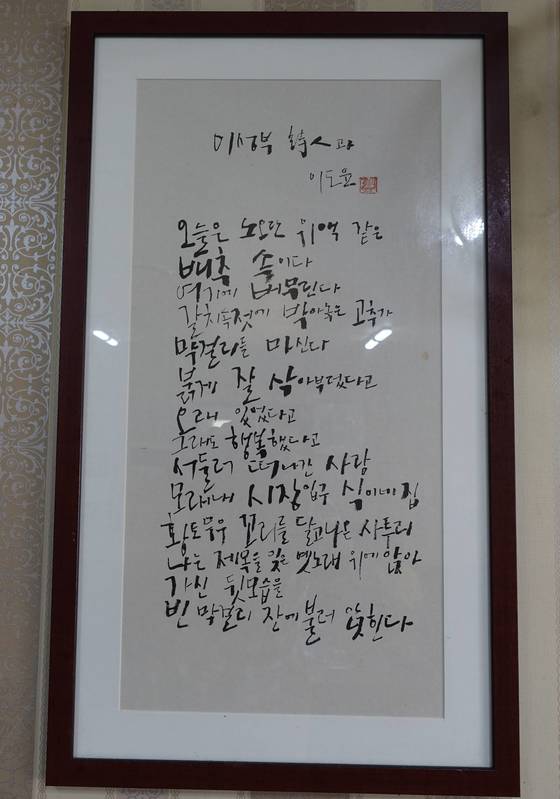 이성부 詩人과
이도윤
오늘은 노오란 위액 같은
배추 속이다
여기에 버무린다
갈치속젓에 박아놓은 고추가
막걸리를 마신다
붉게 잘 삭아부렀다고
오래 있었다고
노래도 행복했다고
서둘러 떠나간 사람
모래내 시장입구 식이네 집
황토무우 꼬리를 달고나온 사투리
나는 제목을 잊은 옛노래 위에 앉아
가신 뒷모습을
빈 막걸리 잔에 불러 앉힌다